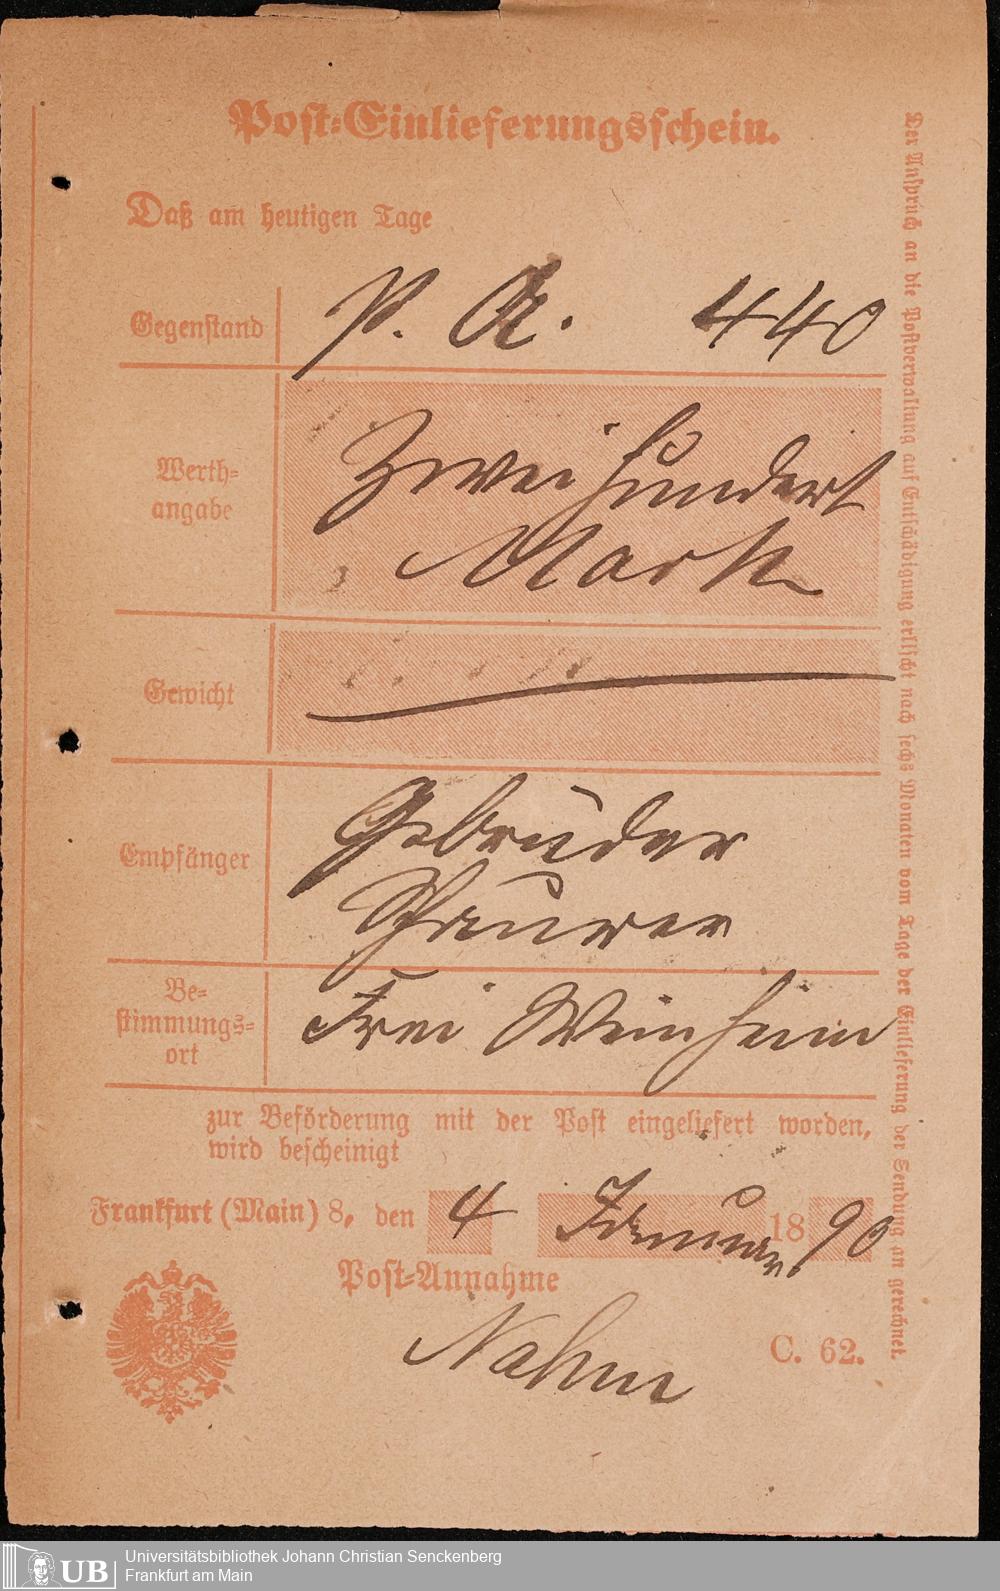 Post-Einlieferungsschein.
Daß am heutigen Tage
Gegenstand P. A. 440
Werth-
angabe
Zweihundert
Mark
Gewicht
Empfänger
Gebrüder
Be-
stimmungs-
ort
Frei Weinheim
zur Beförderung mit der Post eingeliefert worden,
wird bescheinigt
Frankfurt (Main) 8, den 4 1890
Post-Annahme
Nahm
C. 62.
Der Anspruch an die Postverwaltung auf Entschädigung erlischt nach sechs Monaten vom Tage der Einlieferung der Sendung an gerechnet.
UB
Universitätsbibliothek Johann Christian Senckenberg
Frankfurt am Main